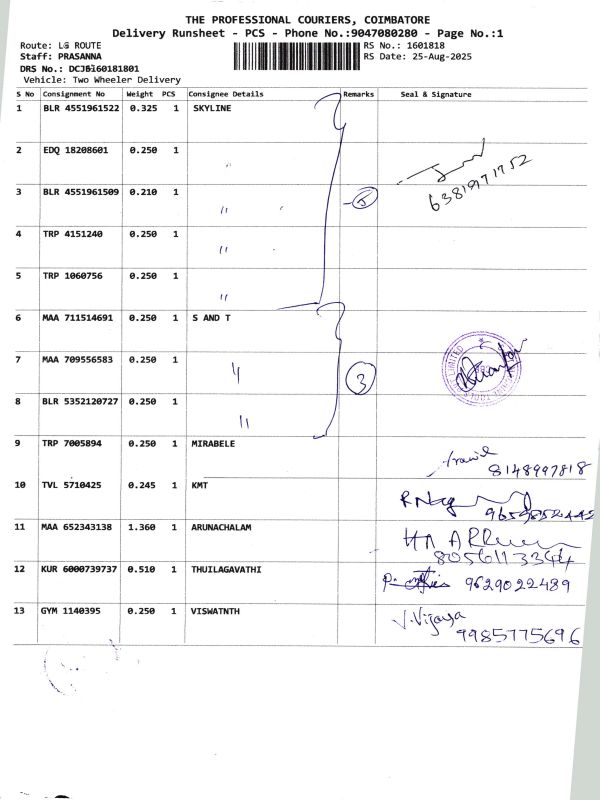 THE PROFESSIONAL COURIERS, COIMBATORE
Delivery Runsheet - PCS - Phone No.:9047080280 - Page No.:1
Route: LG ROUTE
RS No.: 1601818
Staff: PRASANNA
RS Date: 25-Aug-2025
DRS No.: 60181801
Vehicle: Two Wheeler Delivery
S No Consignment No Weight PCS Consignee Details Remarks Seal & Signature
1 BLR 4551961522 0.325 1 SKYLINE
2 EDQ 18208601 0.250 1 "
6381971752
3 BLR 4551961509 0.210 1 " 5
4 TRP 4151240 0.250 1 "
5 TRP 1060756 0.250 1 "
6 MAA 711514691 0.250 1 S AND T
7 MAA 709556583 0.250 1 " 3
8 BLR 5352120727 0.250 1 "
9 TRP 7005894 0.250 1 MIRABELE
8148997818
10 TVL 5710425 0.245 1 KMT
11 MAA 652343138 1.360 1 ARUNACHALAM
8056113344
12 KUR 6000739737 0.510 1 THUILAGAVATHI 9629022489
13 GYM 1140395 0.250 1 VISWATNTH V.Vijaya
9985775696